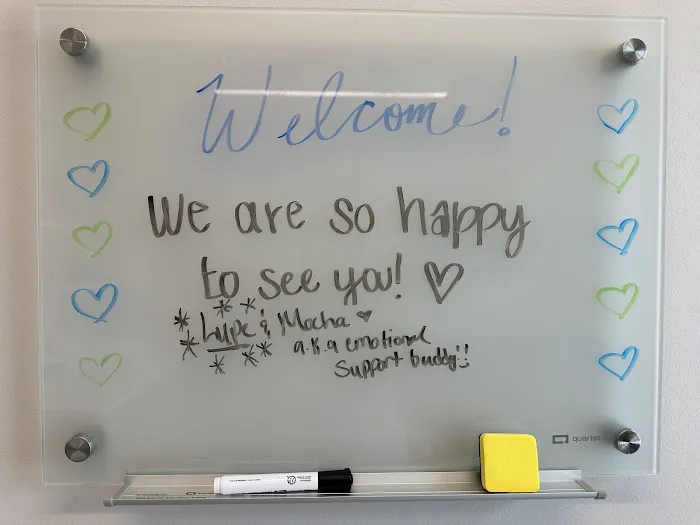 Welcome!
We are so happy
to see you! ♡
Lupe & Mocha ♡
a.k.a emotional
Support buddy!!
quartet